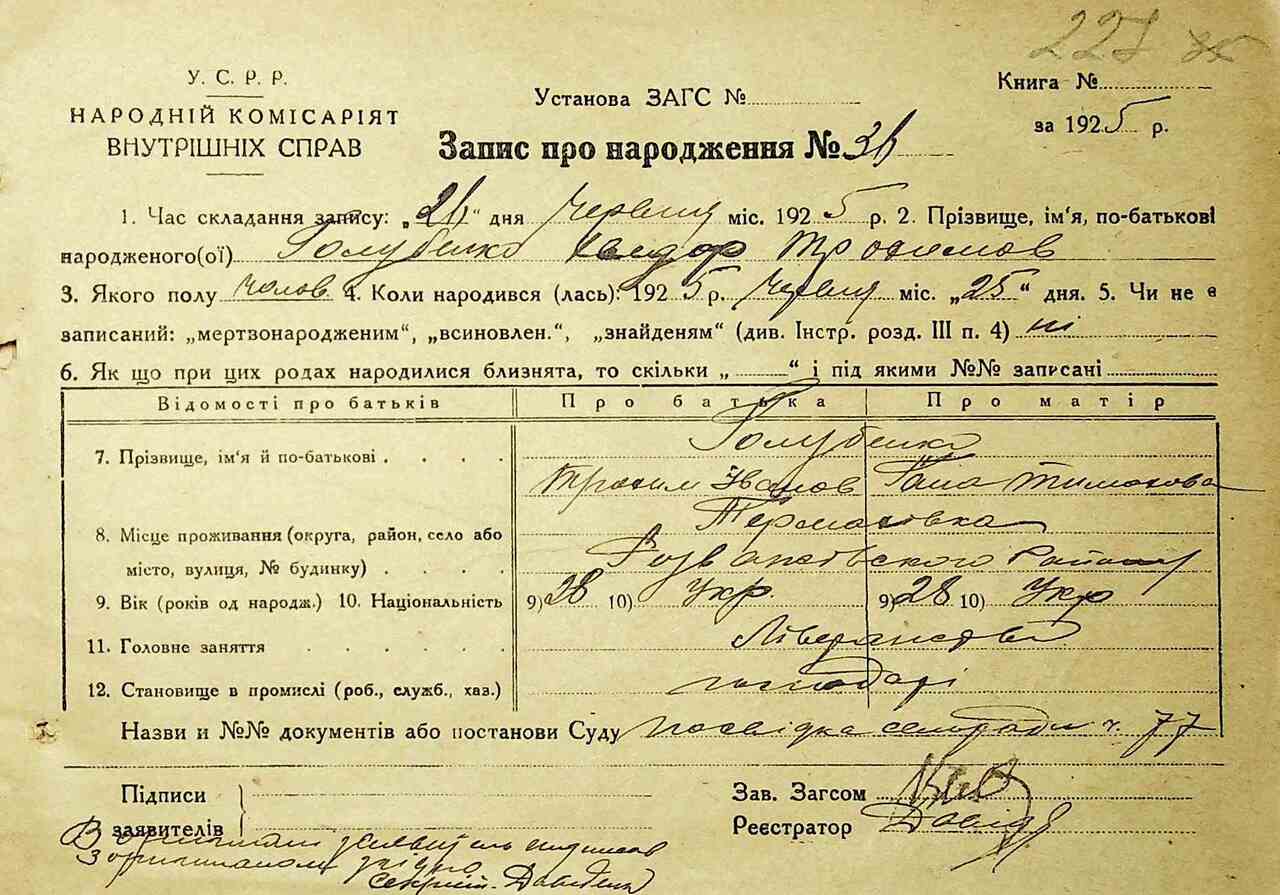 227
У. С. Р. Р.
НАРОДНІЙ КОМІСАРІЯТ
ВНУТРІШНІХ СПРАВ
Установа ЗАГС №
Книга №
за 1925 р.
Запис про народження № 36
1. Час складання запису: „26" дня Червня міс. 1925 р. 2. Прізвище, ім'я, по-батькові
народженого(ої) Голубенко Федор Трофимов
3. Якого полу чолов 4. Коли народився (лась): 1925 р. Червня міс. „25" дня. 5. Чи не є
записаний: „мертзонародженим", „всиновлен.", „знайденям" (див. Інстр. розд. III п. 4) ні
6. Як що при цих родах народилися близнята, то скільки „ " і під якими №№ записані
Відомості про батьків Про батька Про матір
7. Прізвище, ім'я й по-батькові Голубенко
Трохим Іванов Гапа Тимохова
8. Місце проживання (округа, район, село або Термаховка
місто, вулиця, № будинку) Розважівського Району
9. Вік (років од народж.) 10. Національність 9) 28 10) Укр. 9) 28 10) Укр
11. Головне заняття
12. Становище в промислі (роб., служб., хаз.) господарі
Назви и №№ документів або постанови Суду посвідка сельради ч. 77
Підписи
заявителів
Зав. Загсом
Реєстратор
З оригиналом згідно